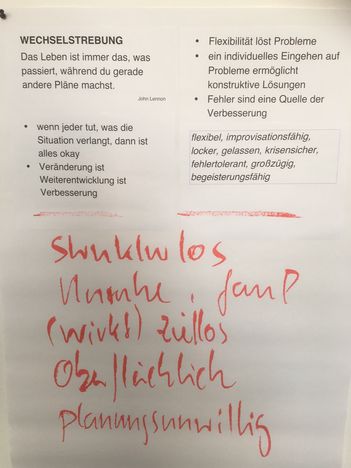 WECHSELSTREBUNG
Das Leben ist immer das, was
passiert, während du gerade
andere Pläne machst.
John Lennon
• wenn jeder tut, was die
Situation verlangt, dann ist
alles okay
• Veränderung ist
Weiterentwicklung ist
Verbesserung
• Flexibilität löst Probleme
• ein individuelles Eingehen auf
Probleme ermöglicht
konstruktive Lösungen
• Fehler sind eine Quelle der
Verbesserung
flexibel, improvisationsfähig,
locker, gelassen, krisensicher,
fehlertolerant, großzügig,
begeisterungsfähig
Strukturlos
Unruhe,
(wirkt) ziellos
Oberflächlich
planungsunwillig